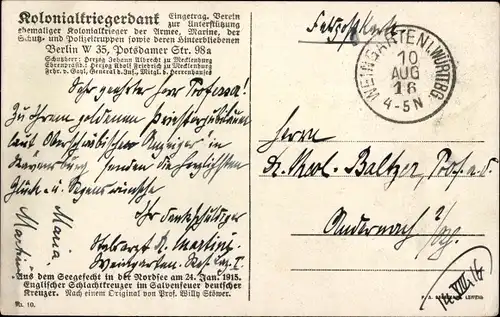 Kolonialkriegerdank Eingetrag. Verein
zur Unterstützung
ehemaliger Kolonialkrieger der Armee, Marine, der
Schutz- und Polizeitruppen sowie deren Hinterbliebenen
Berlin W 35, Potsdamer Str. 98a
Schutzherr: Herzog Johann Albrecht zu Mecklenburg
Ehrenpräsid.: Herzog Adolf Friedrich zu Mecklenburg
Frhr. v. Gayl, General d. Inf., Mitgl. d. Herrenhauses
Feldpostkarte
WEINGARTEN i. WÜRTTBG.
10
AUG
16
4-5N
Sehr geehrter Herr Professor!
Zu Ihrem goldenen Priesterjubiläum
laut Oberschwäbischen Anzeiger in
Ravensburg senden die herzlichsten
Glück- u. Segenswünsche
Ihr dankschuldiger
Stabsarzt Dr. Martin
Weingarten
Maria
Martin
Herrn
Dr. theol. Baltzer, Prof. a. D.
Andernach a/
Aus dem Seegefecht in der Nordsee am 24. Jan. 1915.
Englischer Schlachtkreuzer im Salvenfeuer deutscher
Kreuzer. Nach einem Original von Prof. Willy Stöwer.
Nr. 10.
LEIPZIG